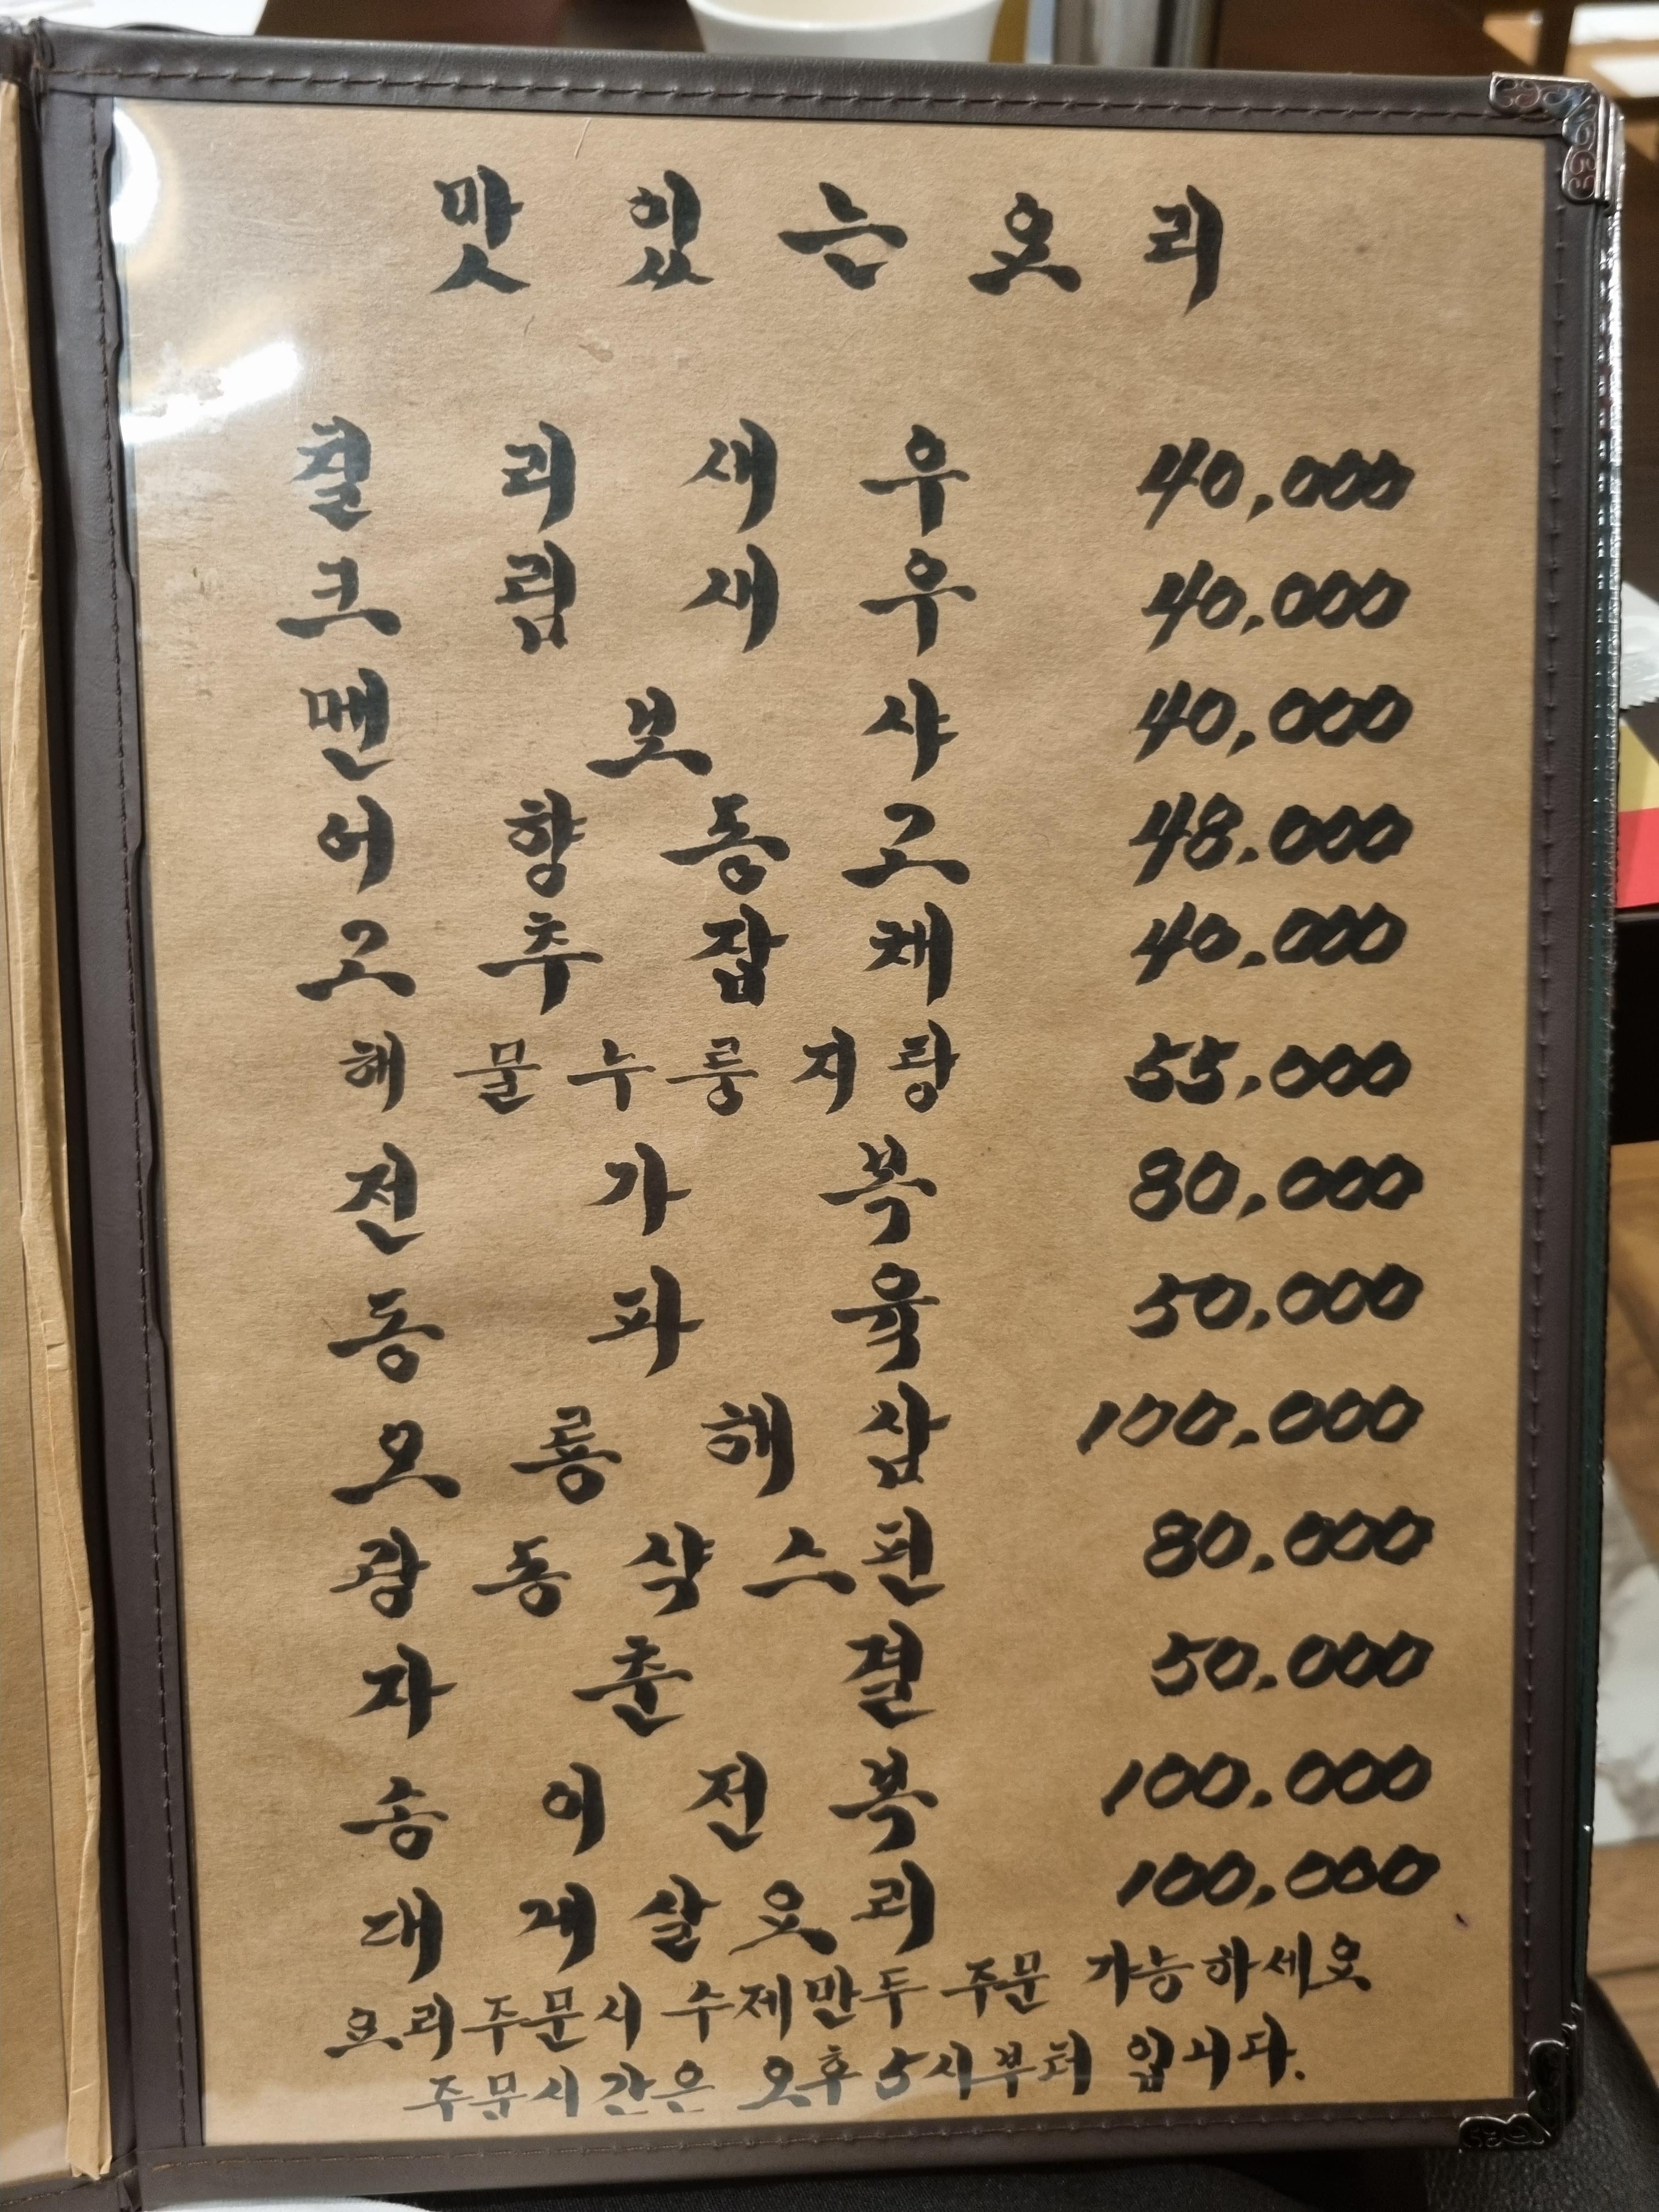 맛있는요리
칠리새우 40,000
크림새우 40,000
멘보샤 40,000
어향동고 48.000
고추잡채 40,000
해물누룽지탕 55,000
전가복 80,000
동파육 50,000
오룡해삼 100,000
광동샥스핀 80,000
자춘결 50,000
송이전복 100,000
대게살요리 100,000
요리주문시 수제만두 주문 가능하세요
주문시간은 오후5시부터 입니다.